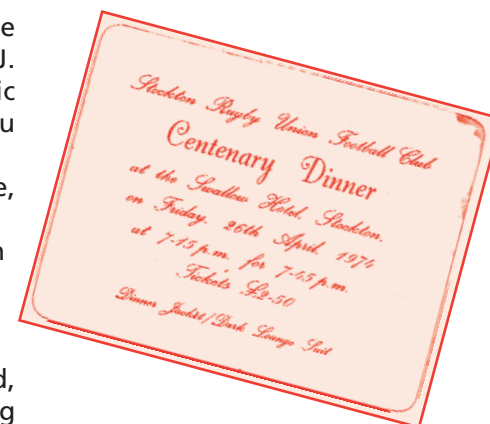 e
J.
ic
u
e,
n
d,
g
Stockton Rugby Union Football Club
Centenary Dinner
at the Swallow Hotel, Stockton.
on Friday, 26th April, 1974
at 7-15 p.m. for 7-45 p.m.
Tickets £2-50
Dinner Jacket/Dark Lounge Suit